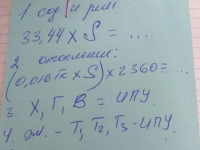 1. сод и рем.
33,44 x S = ....
2. отопление:
(0,016 Гк x S) x 2360 = ....
3. Х, Г, В = ИПУ.
4. эл. - Т1, Т2, Т3 - ИПУ.